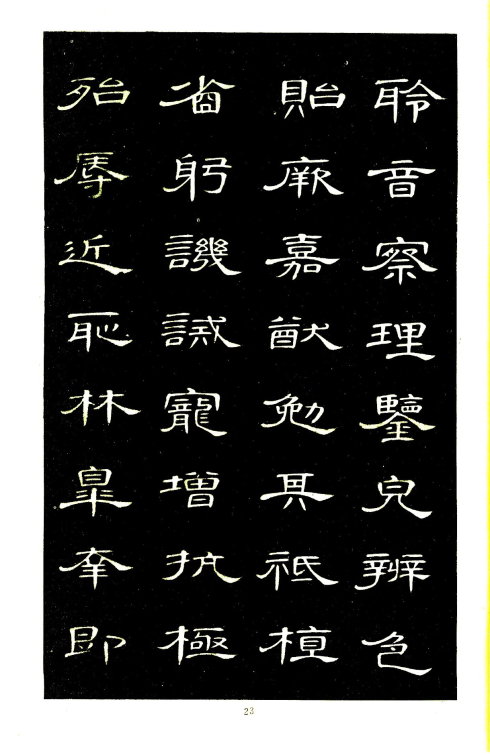 聆音察理鑒皃辨色
貽厥嘉猷勉其祗植
省躬譏誡寵增抗極
殆辱近恥林皋幸即
23